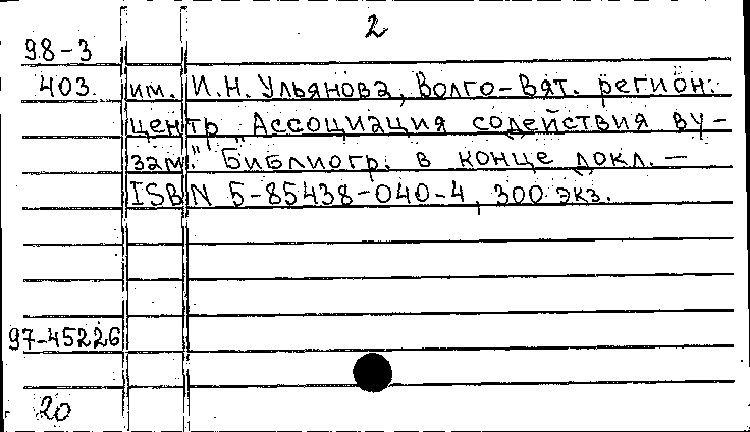 2
98-3
403. им. И.Н. Ульянова, Волго-Вят. регион.
центр „Ассоциация содействия ву-
зам". Библиогр. в конце докл. —
ISBN 5-85438-040-4, 300 экз.
97-45226
20